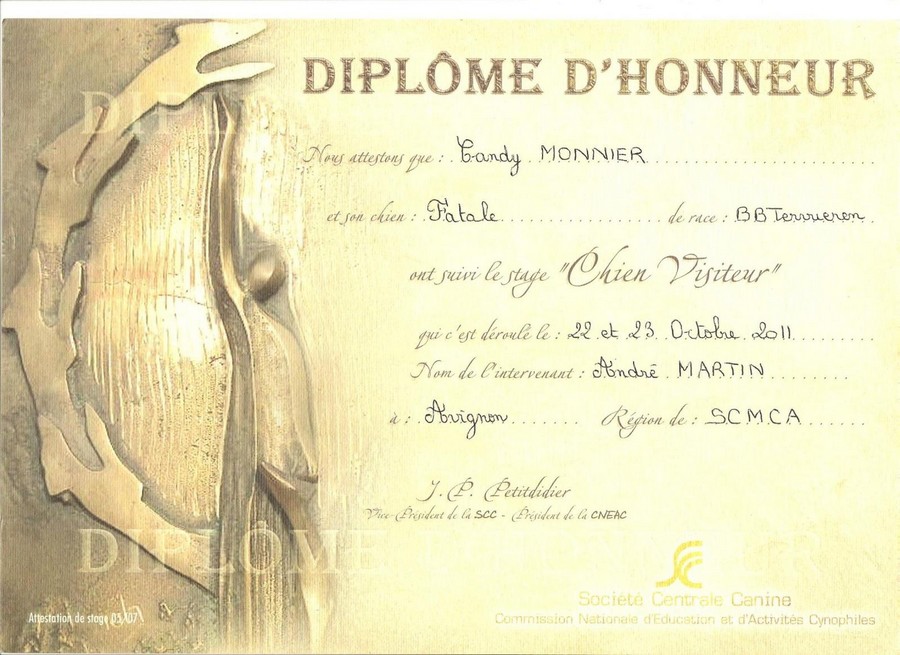 DIPLÔME D'HONNEUR
Nous attestons que : Candy MONNIER
et son chien : Fatale de race : BBTervueren
ont suivi le stage "Chien Visiteur"
qui c'est déroulé le : 22 et 23 Octobre 2011
Nom de l'intervenant : André MARTIN
à : Avignon Région de : S.C.M.C.A
J. P. Petitdidier
Vice-Président de la SCC - Président de la CNEAC
DIPLÔME D'HONNEUR
Société Centrale Canine
Commission Nationale d'Education et d'Activités Cynophiles
Attestation de stage 03/07